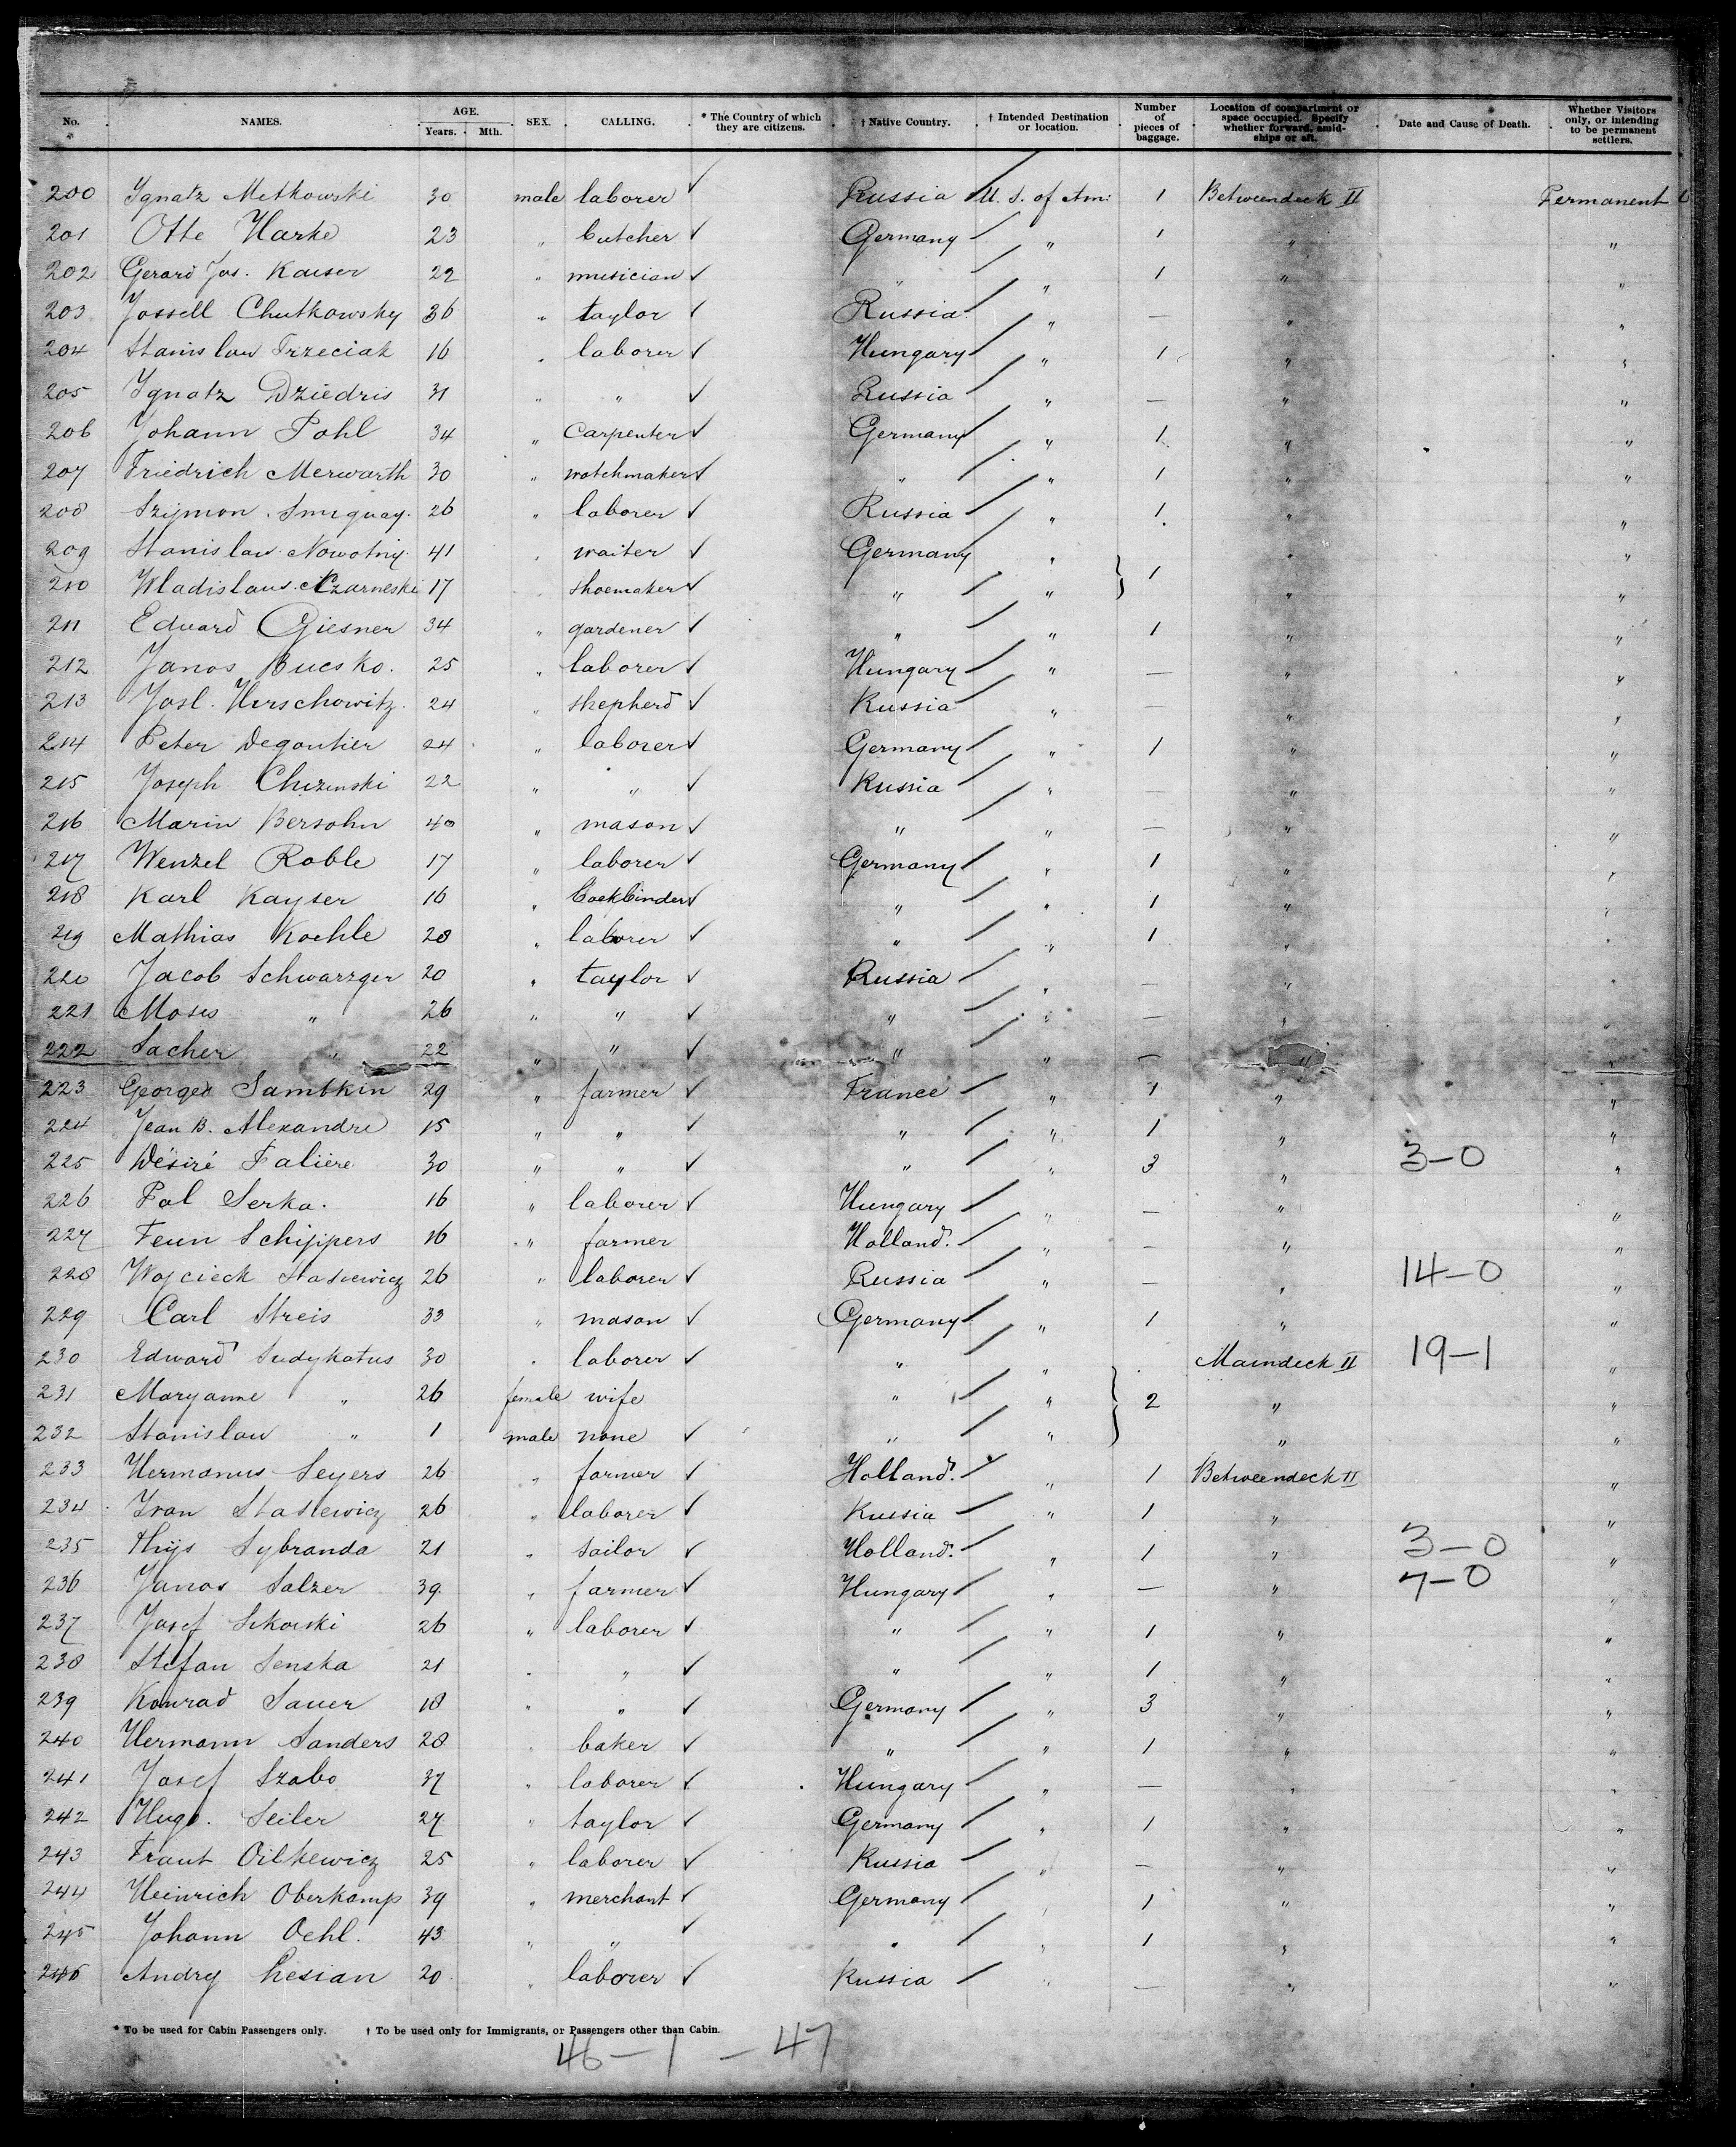 No. NAMES. AGE. Years. Mth. SEX. CALLING. * The Country of which they are citizens. † Native Country. † Intended Destination or location. Number of pieces of baggage. Location of compartment or space occupied. Specify whether forward, amidships or aft. Date and Cause of Death. Whether Visitors only, or intending to be permanent settlers.
200 Ignatz Metkowski 30 male laborer ✓ Russia / U. S. of Am: 1 Betweendeck II Permanent
201 Otte Harke 23 " butcher ✓ Germany / " 1 " "
202 Gerard Jos. Kaiser 22 " musician ✓ " / " 1 " "
203 Jossell Chutkowsky 36 " taylor ✓ Russia / " — " "
204 Stanislaw Trzeciak 16 " laborer ✓ Hungary / " 1 " "
205 Ignatz Dziedris 31 " " ✓ Russia / " — " "
206 Johann Pohl 34 " Carpenter ✓ Germany / " 1 " "
207 Friedrich Merwarth 30 " watchmaker ✓ " / " 1 " "
208 Szijmon 26 " laborer ✓ Russia / " 1 " "
209 Stanislav Nowotny 41 " waiter ✓ Germany / " " "
210 Wladislaus Czarneski 17 shoemaker ✓ " / " } 1 " "
211 Eduard Giesner 34 " gardener ✓ " / " 1 " "
212 Janos Bucsko. 25 " laborer ✓ Hungary / " — " "
213 Josl. Herschowitz 24 " shepherd ✓ Russia / " — " "
214 Peter Degoutier 24 " laborer ✓ Germany / " 1 " "
215 Joseph Chizenski 22 " " ✓ Russia / " — " "
216 Marin Bersohn 40 " mason ✓ " / " — " "
217 Wenzel Roble 17 " laborer ✓ Germany / " 1 " "
218 Karl Kayser 16 " bookbinder ✓ " / " 1 " "
219 Mathias Koehle 28 " laborer ✓ " / " 1 " "
220 Jacob Schwarzger 20 " taylor ✓ Russia / " — " "
221 Moses " 26 " " ✓ " / " — " "
222 Sacher " 22 " " ✓ " / " — " "
223 Georges Samtkin 29 " farmer ✓ France / " 1 " "
224 Jean B. Alexandre 15 " " ✓ " / " 1 " "
225 Désiré Faliere 30 " " ✓ " / " 3 " 3-0 "
226 Pal Serka. 16 " laborer ✓ Hungary / " — " "
227 Teun Schijppers 16 " farmer Holland. / " — " "
228 Wojcieck Stasiewicz 26 " laborer ✓ Russia / " — " 14-0 "
229 Carl Streis 33 " mason ✓ Germany / " 1 " "
230 Edward Sudykatus 30 " laborer ✓ " / " Maindeck II 19-1 "
231 Maryanne " 26 female wife " / " } 2 " "
232 Stanislaw " 1 male none ✓ " / " " "
233 Hermanus Seyers 26 " farmer ✓ Holland. / " 1 Betweendeck II "
234 Ivan Stasiewicz 26 " laborer ✓ Russia / " 1 " "
235 Thijs Sybranda 21 " sailor ✓ Holland. / " 1 " 3-0 "
236 Janos Salzer 39 " farmer ✓ Hungary / " — " 7-0 "
237 Josef Sikorski 26 " laborer ✓ " / " 1 " "
238 Stefan Senska 21 " " ✓ " / " 1 " "
239 Konrad Sauer 18 " " ✓ Germany / " 3 " "
240 Hermann Sanders 28 " baker ✓ " / " 1 " "
241 Josef Szabo 37 " laborer ✓ Hungary / " — " "
242 Hugo. Seiler 27 " taylor ✓ Germany / " 1 " "
243 Frant Oilkewicz 25 " laborer ✓ Russia / " — " "
244 Heinrich Oberkamp 39 " merchant ✓ Germany / " 1 " "
245 Johann Oehl. 43 " " ✓ " / " 1 " "
246 Andry Lesian 20 " laborer ✓ Russia / " — " "
* To be used for Cabin Passengers only. † To be used only for Immigrants, or Passengers other than Cabin.
46 — 1 — 47